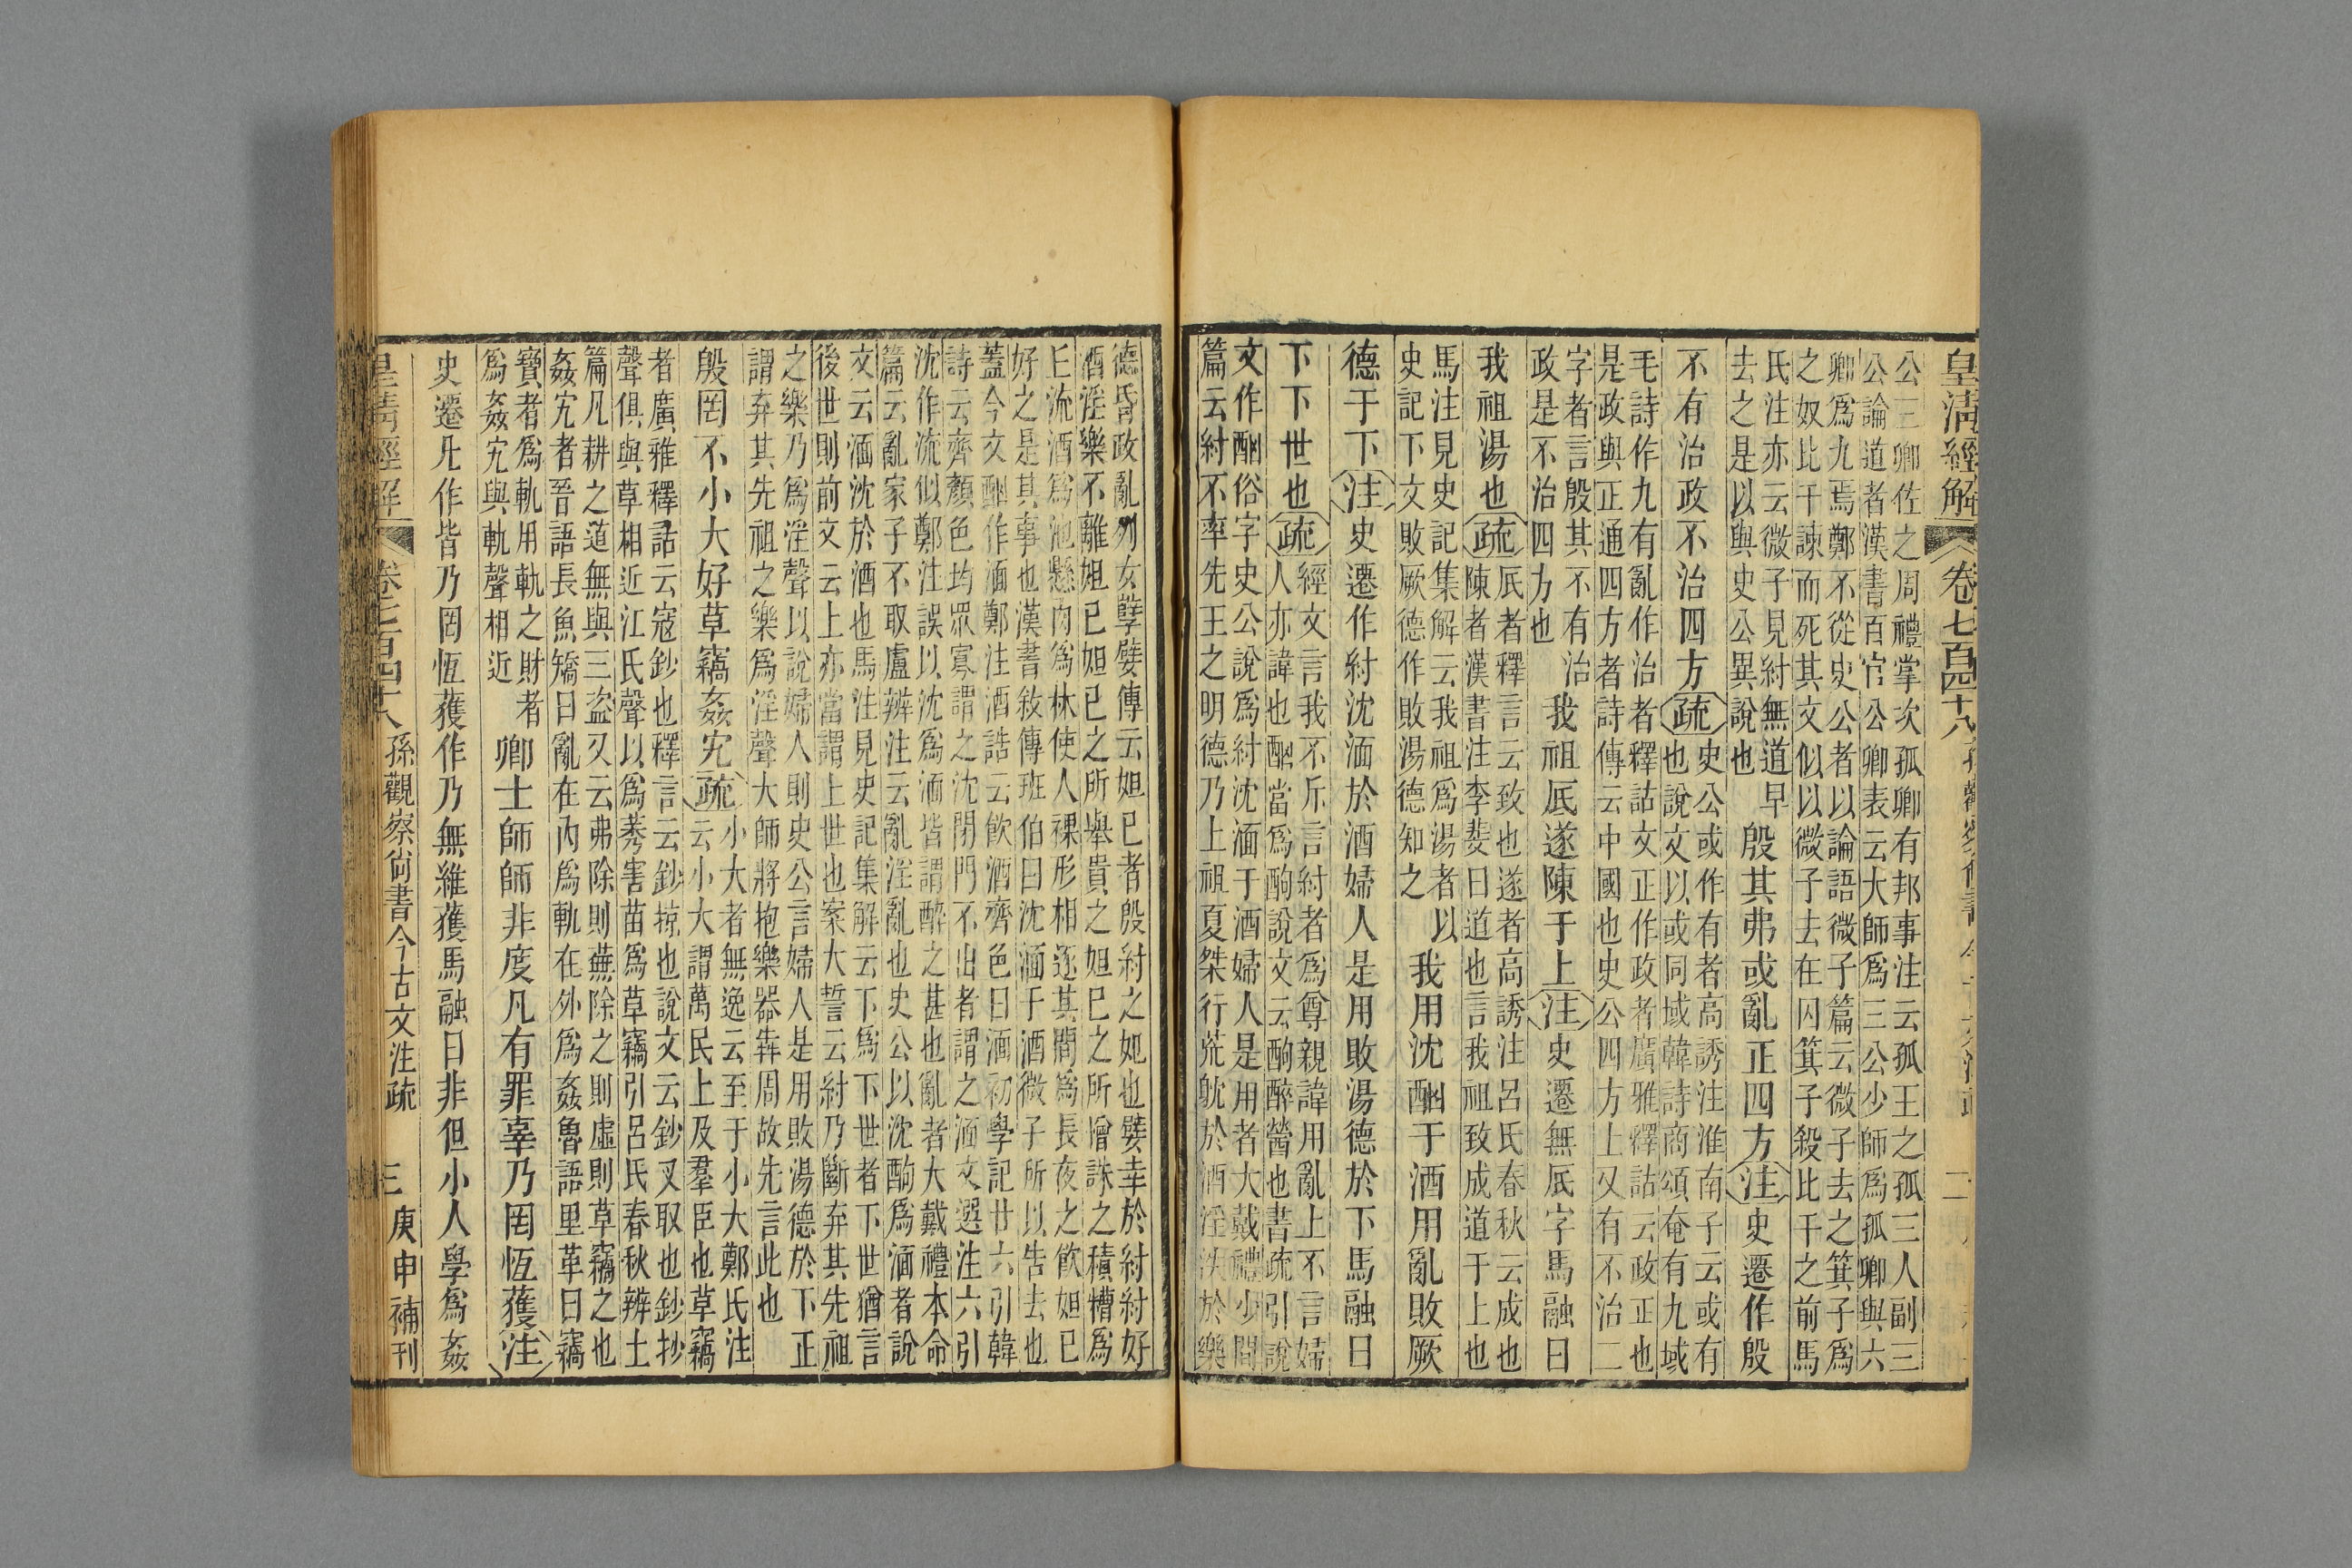 皇清經解
卷七百四十八
公三卿佐之周禮掌次孤卿有邦事注云孤王之孤三人副三
公論道者漢書百官公卿表云大師爲三公少師爲孤卿與六
卿爲九焉鄭不從史公者以論語微子篇云微子去之箕子爲
之奴比干諫而死其文似以微子去在囚箕子殺比干之前馬
氏注亦云微子見紂無道早
去之是以與史公異說也
殷其弗或亂正四方注史遷作殷
不有治政不治四方疏
史公或作有者高誘注淮南子云或有
也說文以或同域韓詩商頌奄有九域
毛詩作九有亂作治者釋詁文正作政者廣雅釋詁云政正也
是政與正通四方者詩傳云中國也史公四方上又有不治二
字者言殷其不有治
政是不治四方也
我祖厎遂陳于上注史遷無厎字馬融曰
我祖湯也疏
厎者釋言云致也遂者高誘注呂氏春秋云成也
陳者漢書注李斐曰道也言我祖致成道于上也
馬注見史記集解云我祖爲湯者以
史記下文敗厥德作敗湯德知之
我用沈酗于酒用亂敗厥
德于下注史遷作紂沈湎於酒婦人是用敗湯德於下馬融曰
下下世也疏
經文言我不斥言紂者爲尊親諱用亂上不言婦
人亦諱也酗當爲酌說文云酌醉醟也書疏引說
文作酗俗字史公說爲紂沈湎于酒婦人是用者大戴禮少間
篇云紂不率先王之明德乃上祖夏桀行荒耽於酒淫泆於樂
德昏政亂列女孽嬖傳云妲己者殷紂之妃也嬖幸於紂紂好
酒淫樂不離妲己妲己之所舉貴之妲己之所憎誅之積糟爲
邱流酒爲池懸肉爲林使人裸形相逐其閒爲長夜之飲妲己
好之是其事也漢書敘傳班伯曰沈湎于酒微子所以告去也
蓋今文酗作湎鄭注酒誥云飲酒齊色曰湎初學記廿六引韓
詩云齊顏色均眾寡謂之沈閉門不出者謂之湎文選注六引
沈作流似鄭注誤以沈爲湎皆謂醉之甚也亂者大戴禮本命
篇云亂家子不取盧辨注云亂淫亂也史公以沈酗爲湎者說
文云湎沈於酒也馬注見史記集解云下爲下世者下世猶言
後世則前文云上亦當謂上世也案大誓云紂乃斷弃其先祖
之樂乃爲淫聲以說婦人則史公言婦人是用敗湯德於下正
謂弃其先祖之樂爲淫聲大師將抱樂器犇周故先言此也
殷罔不小大好草竊姦宄疏
小大者無逸云至于小大鄭氏注
云小大謂萬民上及羣臣也草竊
者廣雅釋詁云寇鈔也釋言云鈔掠也說文云鈔叉取也鈔抄
聲俱與草相近江氏聲以爲莠害苗爲草竊引呂氏春秋辨土
篇凡耕之道無與三盗又云弗除則蕪除之則虛則草竊之也
姦宄者晉語長魚矯曰亂在內爲軌在外爲姦魯語里革曰竊
寶者爲軌用軌之財者
爲姦宄與軌聲相近
卿士師師非度凡有罪辜乃罔恆獲注
史遷凡作皆乃罔恆獲作乃無維獲馬融曰非但小人學爲姦
皇清經解
卷七百四十八
孫觀察尚書今古文注疏
三
庚申補刊